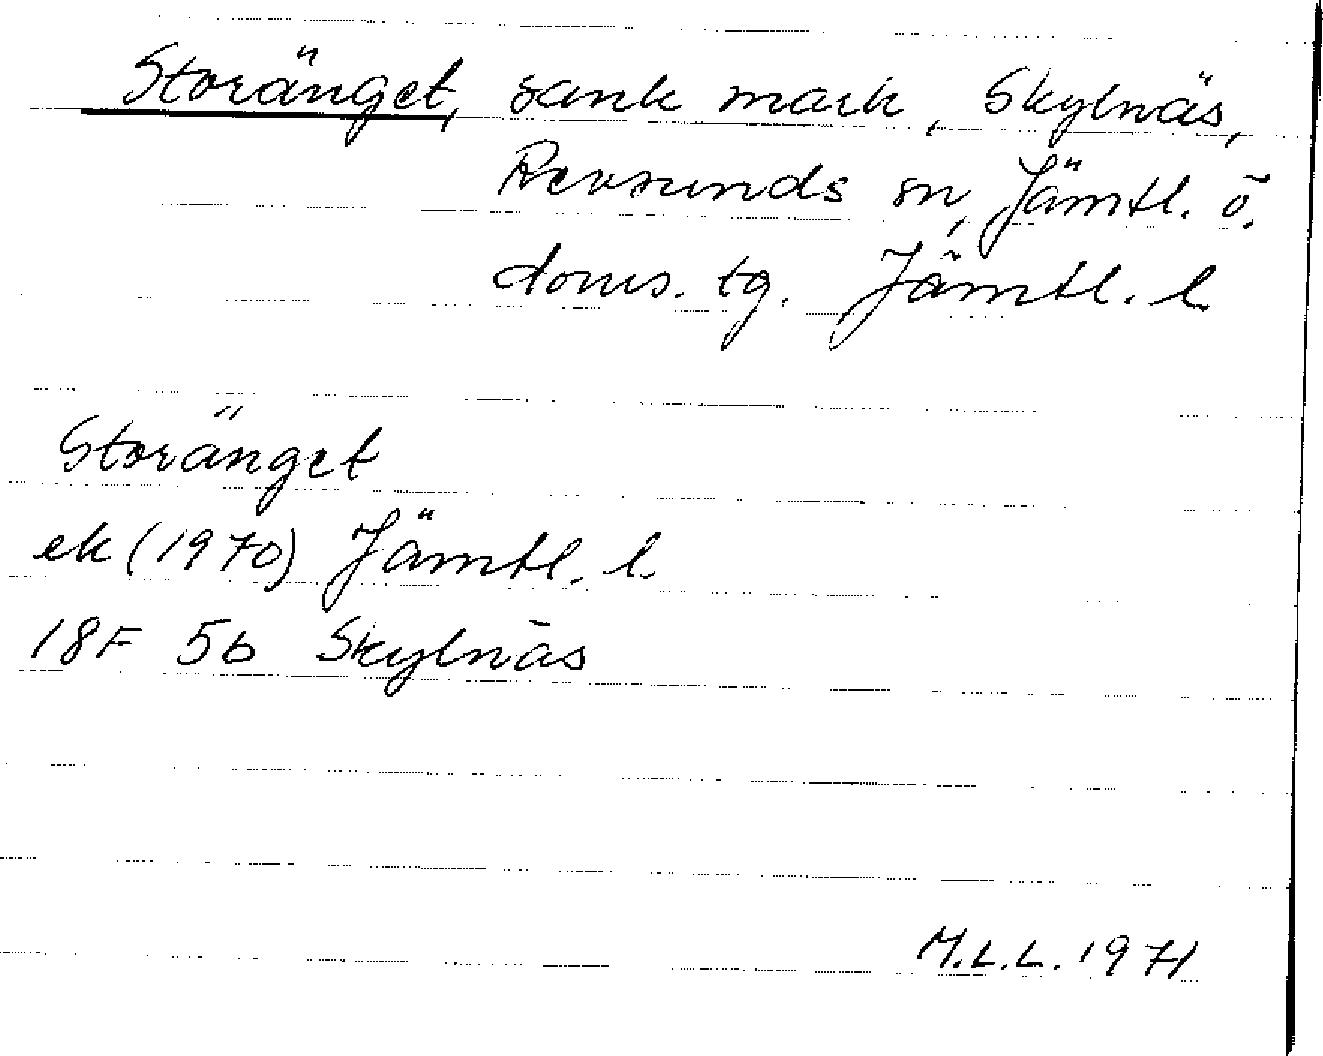 Storänget, sank mark, Skylnäs,
Revsunds sn, Jämtl. ö.
doms. tg. Jämtl. l.
Storänget
ek (1970) Jämtl. l.
18F 5b Skylnäs
M.L.L. 1971